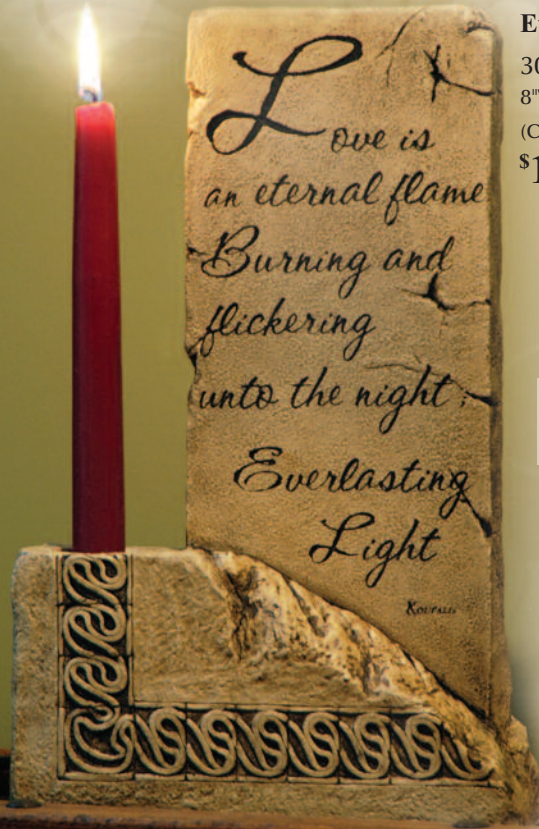 Love is
an eternal flame
Burning and
flickering
unto the night;
Everlasting
Light
30
8"
$1